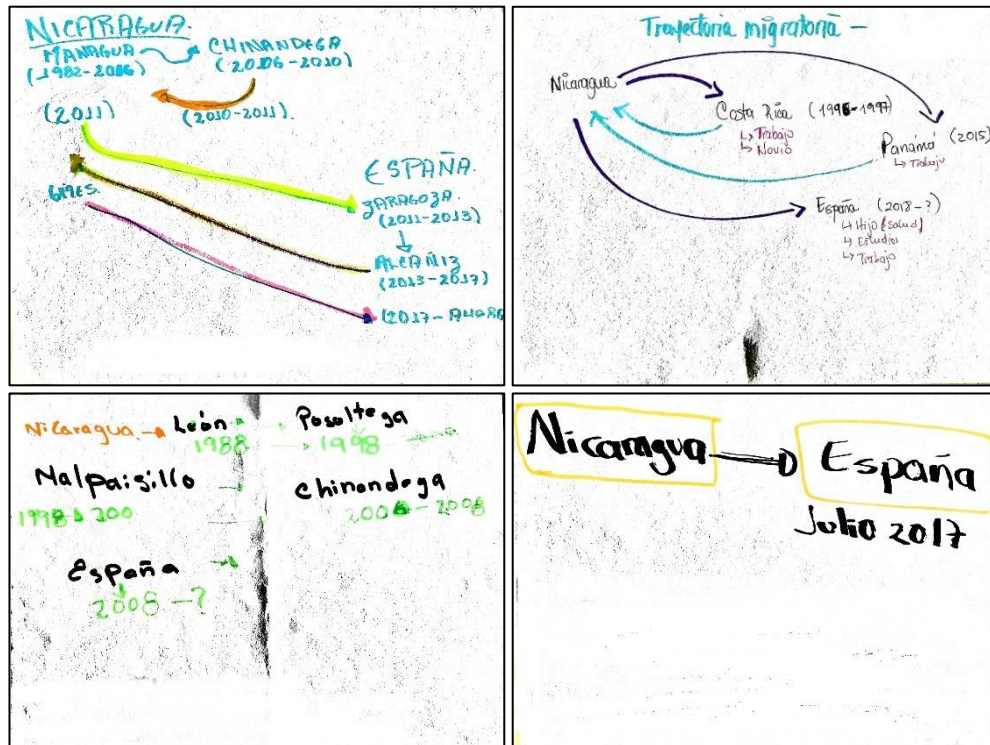 NICARAGUA.
MANAGUA
(1982-2006)
CHINANDEGA
(2006-2010)
(2010-2011).
(2011)
ESPAÑA.
ZARAGOZA.
(2011-2013)
ALCAÑIZ
(2013-2017)
(2017-AHORA
Trayectoria migratoria -
Nicaragua
Costa Rica (1996-1997)
↳ Trabajo
↳ Novio
Panamá (2015)
↳ Trabajo
España (2018-?)
↳ Hijo (salud)
↳ Estudios
↳ Trabajo
Nicaragua → León → Posoltega
1988 → 1998 →
Malpaisillo → Chinandega
1998 200 → 2006-2008
España →
2008-?
Nicaragua → España
Julio 2017